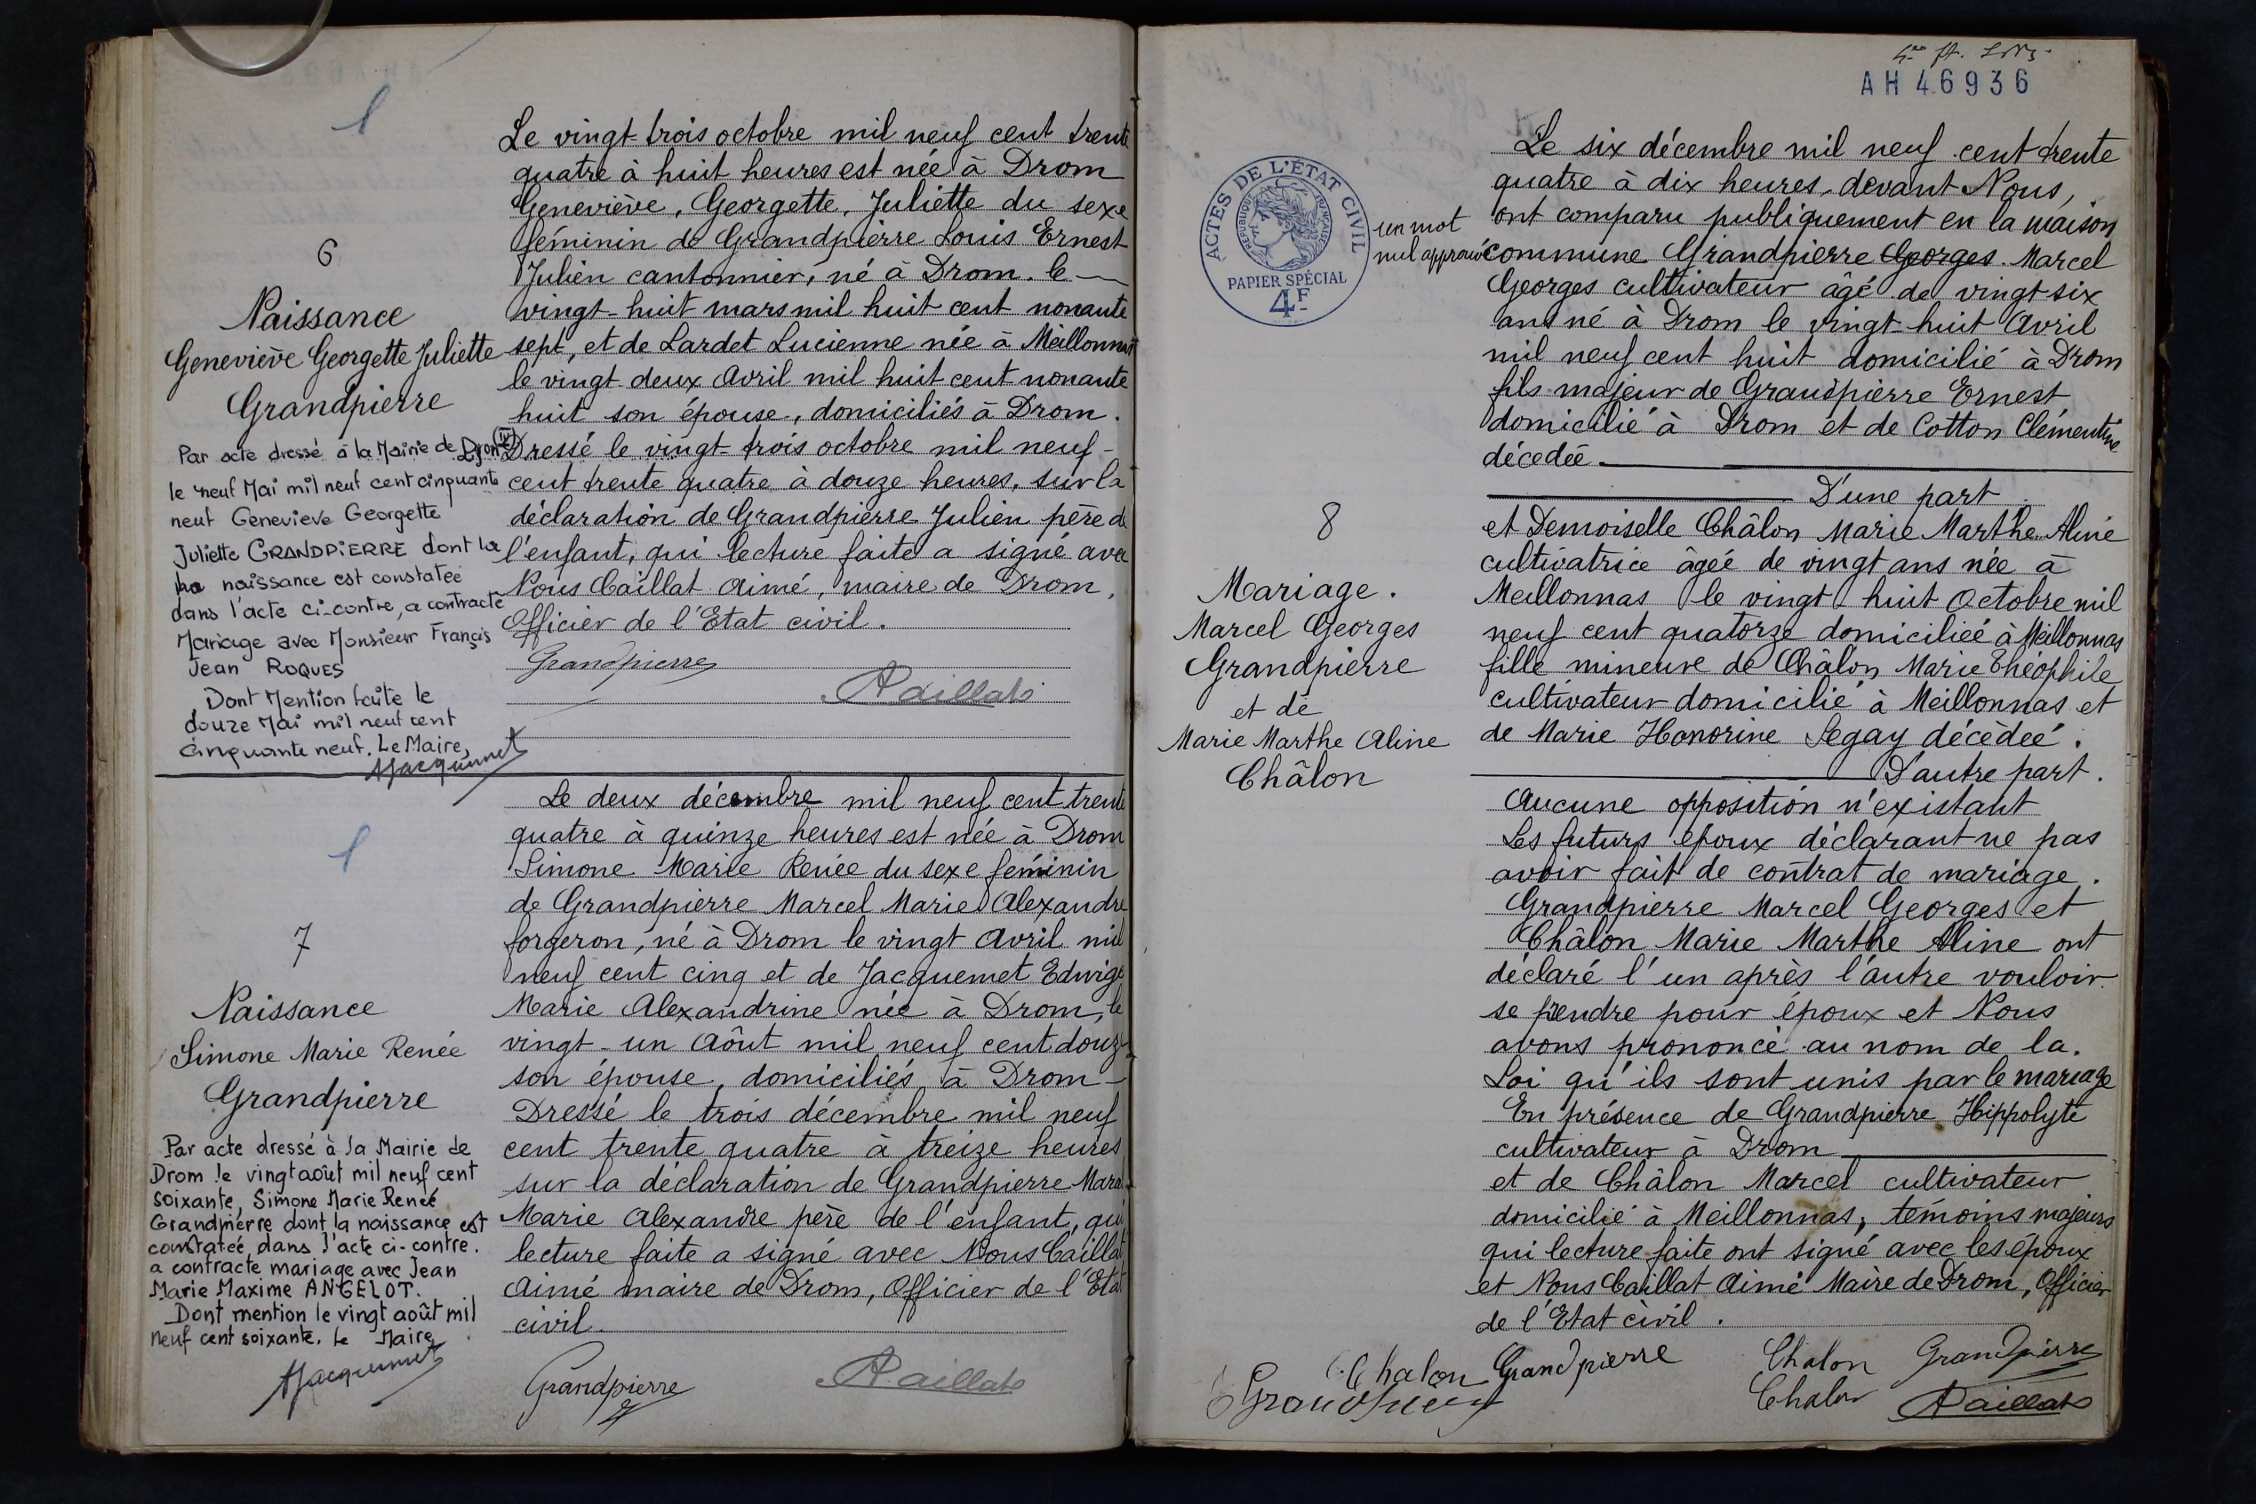 6
Naissance
Geneviève Georgette Juliette
Grandpierre
Par acte dressé à la Mairie de Lyon (IV)
le neuf Mai mil neuf cent cinquante
neuf Genevieve Georgette
Juliette GRANDPIERRE dont la
naissance est constatée
dans l'acte ci-contre, a contracté
Mariage avec Monsieur Françis
Jean ROQUES
Dont Mention faite le
douze Mai mil neuf cent
cinquante neuf. Le Maire,
AJacquemet
Le vingt-trois octobre mil neuf cent trente
quatre à huit heures est née à Drom
Geneviève, Georgette, Juliette du sexe
féminin de Grandpierre Louis Ernest
Julien cantonnier, né à Drom le
vingt-huit mars mil huit cent nonante
sept, et de Lardet Lucienne née à Meillonnas
le vingt-deux Avril mil huit cent nonante
huit son épouse, domiciliés à Drom.
Dressé le vingt-trois octobre mil neuf-
cent trente quatre à douze heures, sur la
déclaration de Grandpierre Julien père de
l'enfant, qui lecture faite a signé avec
Nous Caillat Aimé, maire de Drom,
Officier de l'Etat civil.
Grandpierre
ACaillat
7
Naissance
Simone Marie Renée
Grandpierre
Par acte dressé à la Mairie de
Drom le vingt août mil neuf cent
soixante, Simone Marie Renée
Grandpierre dont la naissance est
constatée dans l'acte ci-contre.
a contracté mariage avec Jean
Marie Maxime ANGELOT.
Dont mention le vingt août mil
neuf cent soixante. Le Maire
AJacquemet
Le deux décembre mil neuf cent trente
quatre à quinze heures est née à Drom
Simone Marie Renée du sexe féminin
de Grandpierre Marcel Marie Alexandre
forgeron, né à Drom le vingt Avril mil
neuf cent cinq et de Jacquemet Edwige
Marie Alexandrine née à Drom, le
vingt-un Août mil neuf cent douze
son épouse, domiciliés à Drom-
Dressé le trois décembre mil neuf
cent trente quatre à treize heures
sur la déclaration de Grandpierre Marcel
Marie Alexandre père de l'enfant, qui
lecture faite a signé avec Nous Caillat
Aimé maire de Drom, Officier de l'Etat
civil.
Grandpierre
ACaillat
AH 46936
ACTES DE L'ÉTAT CIVIL
RÉPUBLIQUE FRANÇAISE
PAPIER SPÉCIAL
4F
un mot
nul approuvé
8
Mariage.
Marcel Georges
Grandpierre
et de
Marie Marthe Aline
Châlon
Le six décembre mil neuf cent trente
quatre à dix heures, devant Nous,
ont comparu publiquement en la maison
commune Grandpierre Georges Marcel
Georges cultivateur âgé de vingt-six
ans né à Drom le vingt-huit Avril
mil neuf cent huit domicilié à Drom
fils majeur de Grandpierre Ernest
domicilié à Drom et de Cotton Clémentine
décedée
D'une part
et Demoiselle Châlon Marie Marthe Aline
cultivatrice âgée de vingt ans née à
Meillonnas le vingt-huit Octobre mil
neuf cent quatorze domiciliée à Meillonnas
fille mineure de Châlon Marie Théophile
cultivateur domicilié à Meillonnas et
de Marie Honorine Segay décèdeé.
D'autre part.
Aucune opposition n'existant
Les futurs époux déclarant ne pas
avoir fait de contrat de mariage.
Grandpierre Marcel Georges et
Châlon Marie Marthe Aline ont
déclaré l'un après l'autre vouloir
se prendre pour époux et Nous
avons prononcé au nom de la
Loi qu'ils sont unis par le mariage
En présence de Grandpierre Hippolyte
cultivateur à Drom
et de Châlon Marcel cultivateur
domicilié à Meillonnas, témoins majeurs
qui lecture faite ont signé avec les époux
et Nous Caillat Aimé Maire de Drom, Officier
de l'Etat civil.
Chalon Grandpierre Chalon Grandpierre
Grandpierre Chalon ACaillat